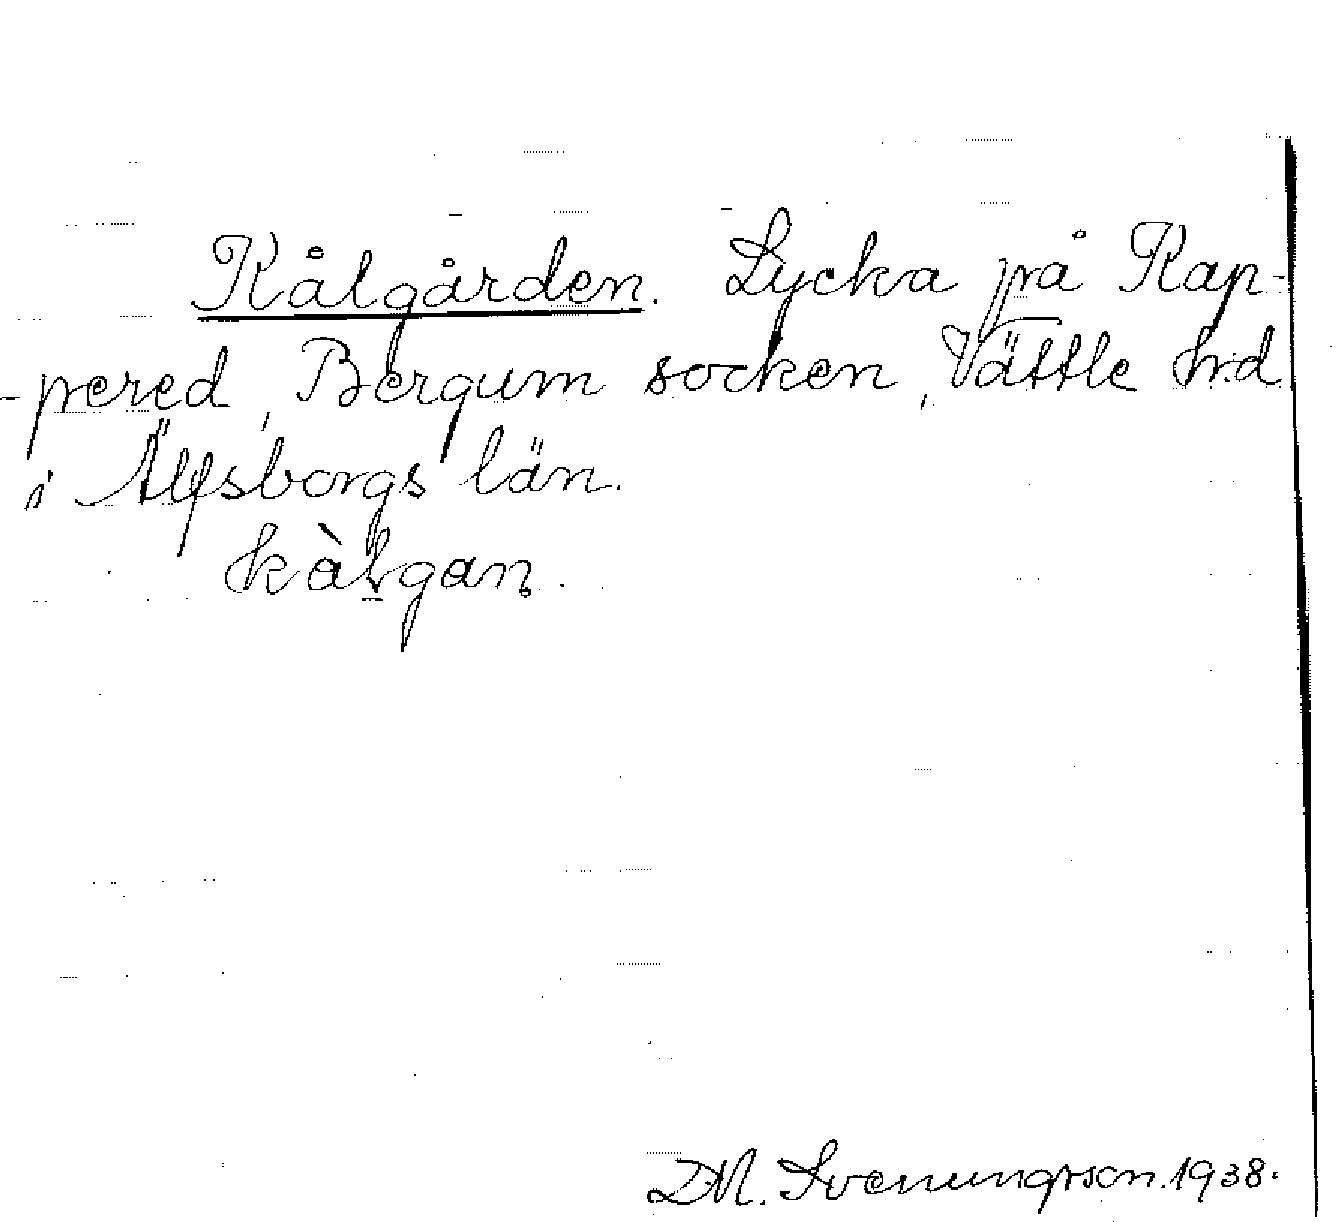 Kålgården. Lycka på Rap-
-pered, Bergum socken, Vättle hrd.
i Älfsborgs län.
kàlgan.
D.M. Svenungsson. 1938.